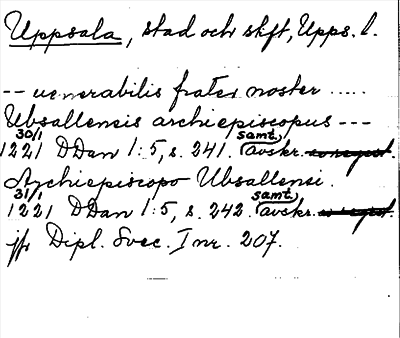 Uppsala, stad och stift, Upps. l.
-- venerabilis frater noster .....
Ubsallensis archiepiscopus ---
30/1 samt.
1221 DDan 1:5, s. 241. avskr.
Archiepiscopo Ubsallensi.
31/1 samt.
1221 DDan 1:5, s. 242. avskr.
jfr Dipl. Svec. I nr. 207.